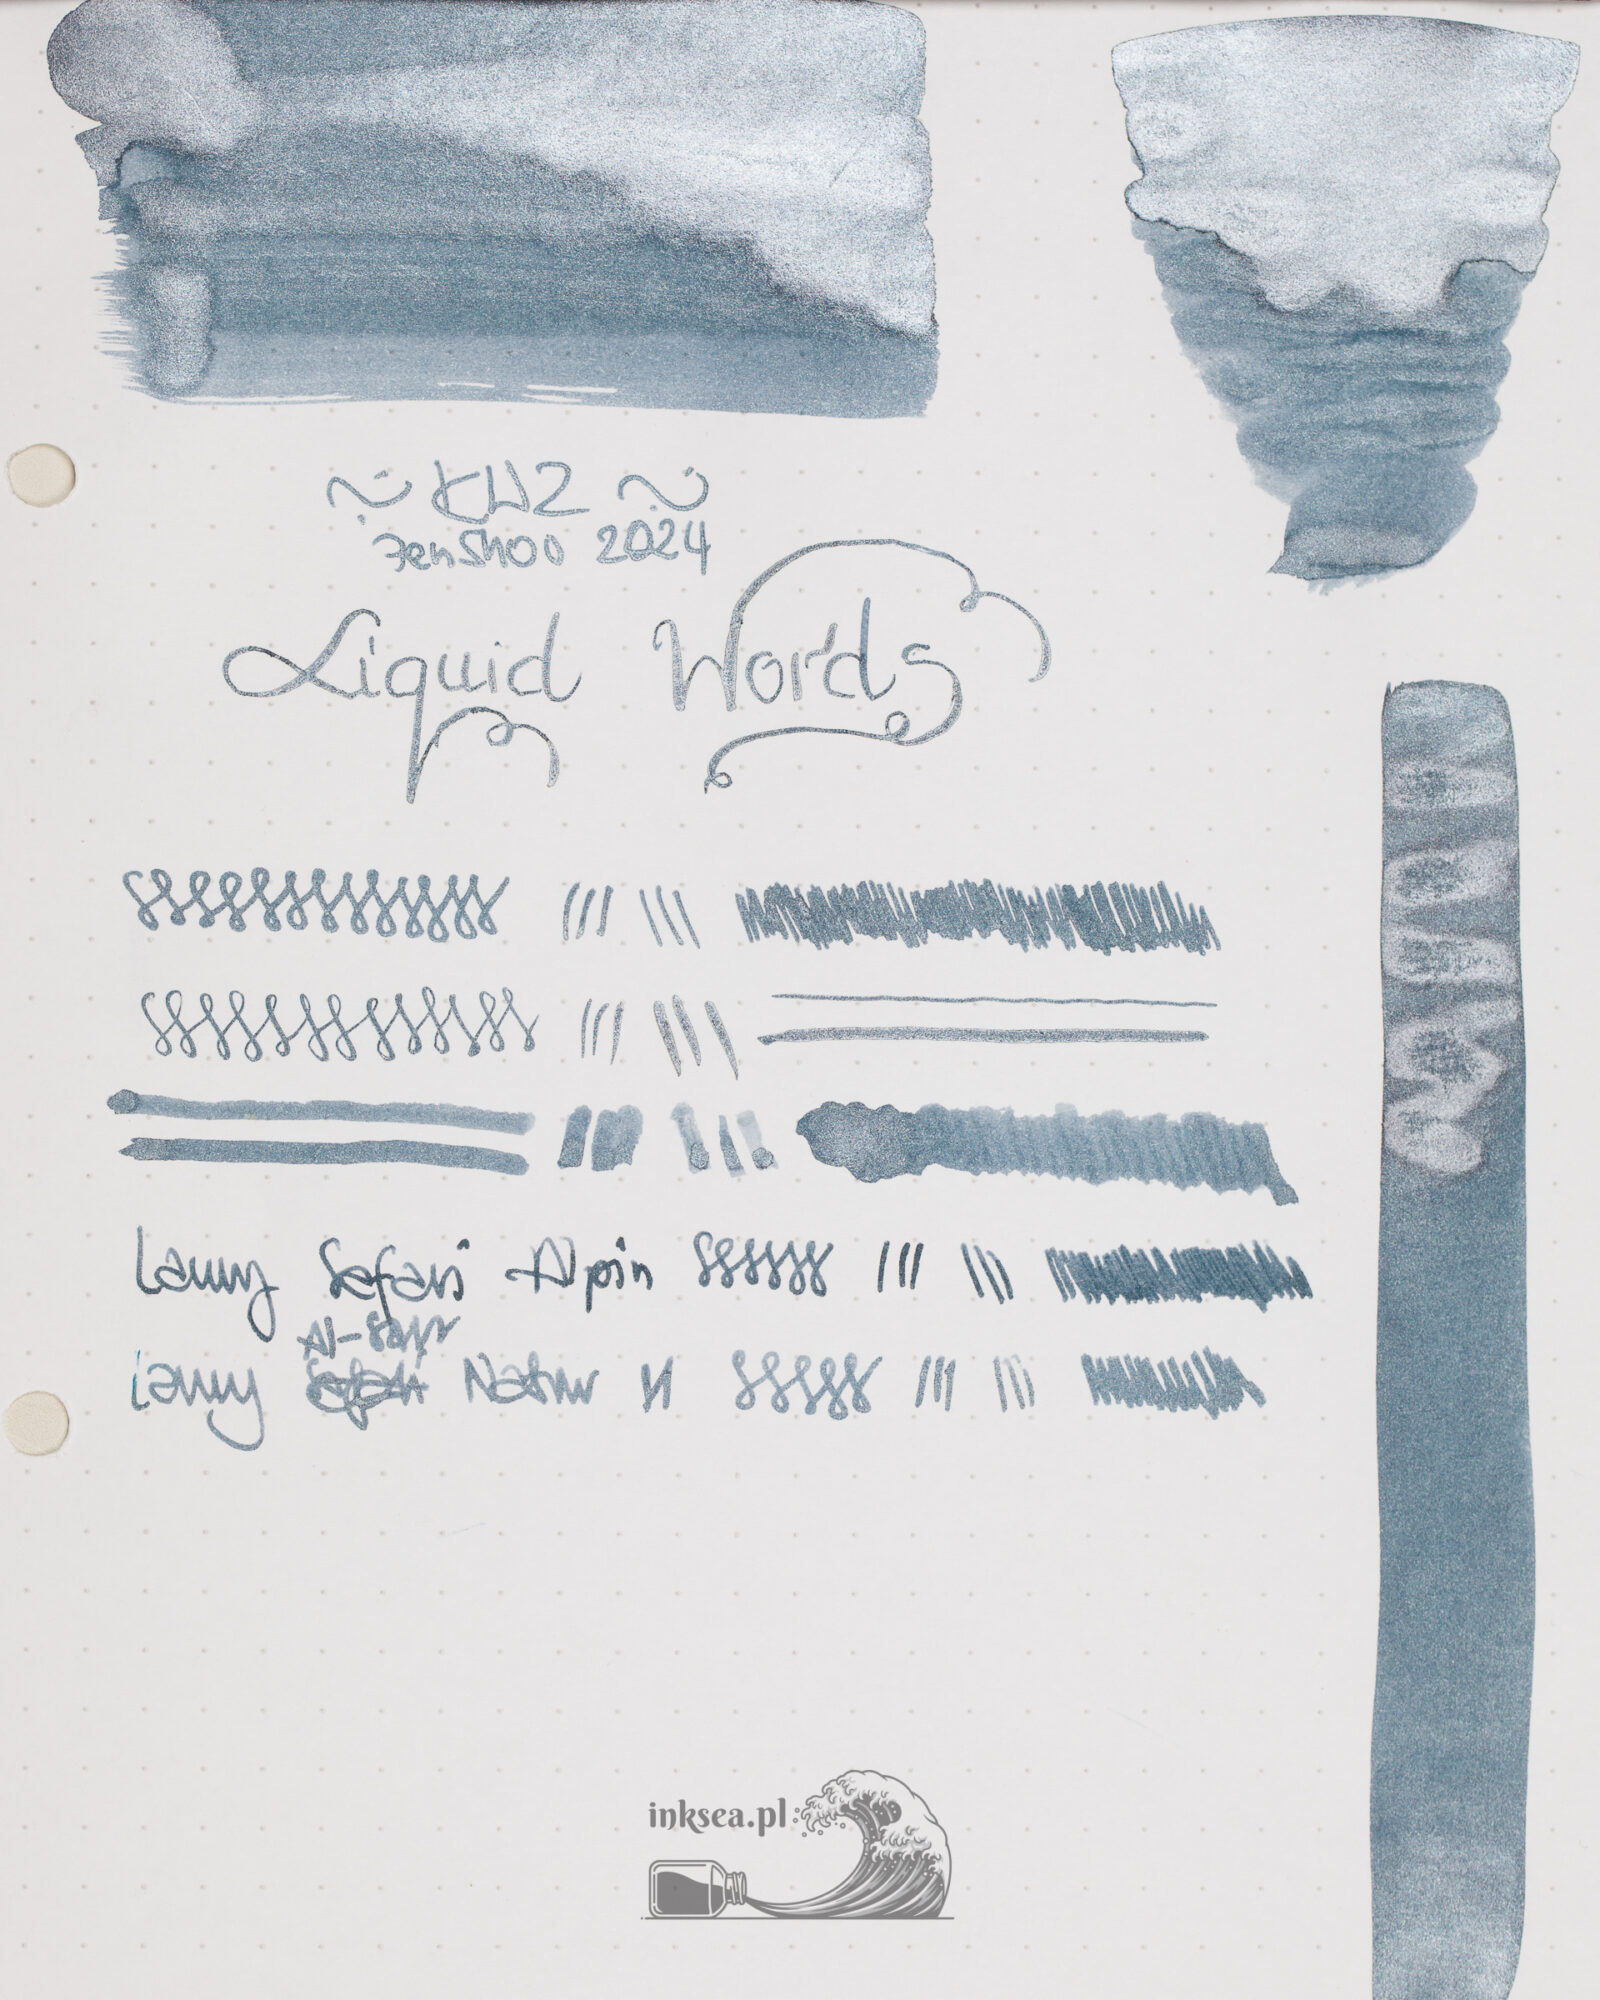 ~ KWZ ~
PenShow 2024
Liquid Words
Lamy Safari Alpin
Al-Safr
Lamy Safari Natur M
inksea.pl